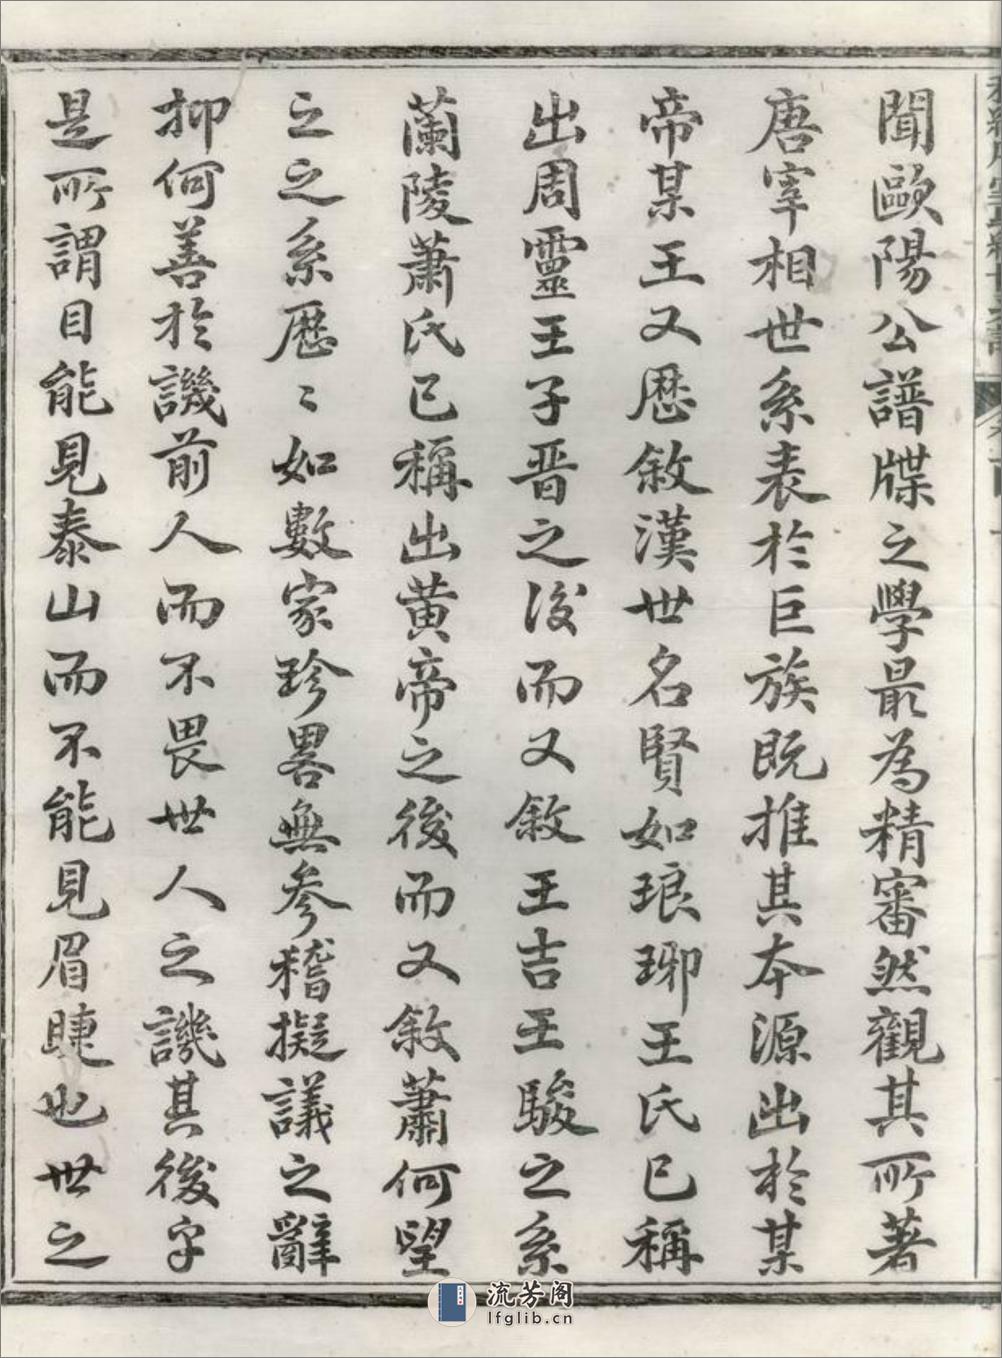 聞歐陽公譜牒之學最為精審然觀其所著
唐宰相世系表於巨族既推其本源出於某
帝某王又歷敘漢世名賢如琅琊王氏已稱
出周靈王子晉之後而又敘王吉王駿之系
蘭陵蕭氏已稱出黃帝之後而又敘蕭何望
之之系歷〻如數家珍畧無參稽擬議之辭
抑何善於譏前人而不畏世人之譏其後乎
是所謂目能見泰山而不能見眉睫也世之
流芳阁
lfglib.cn